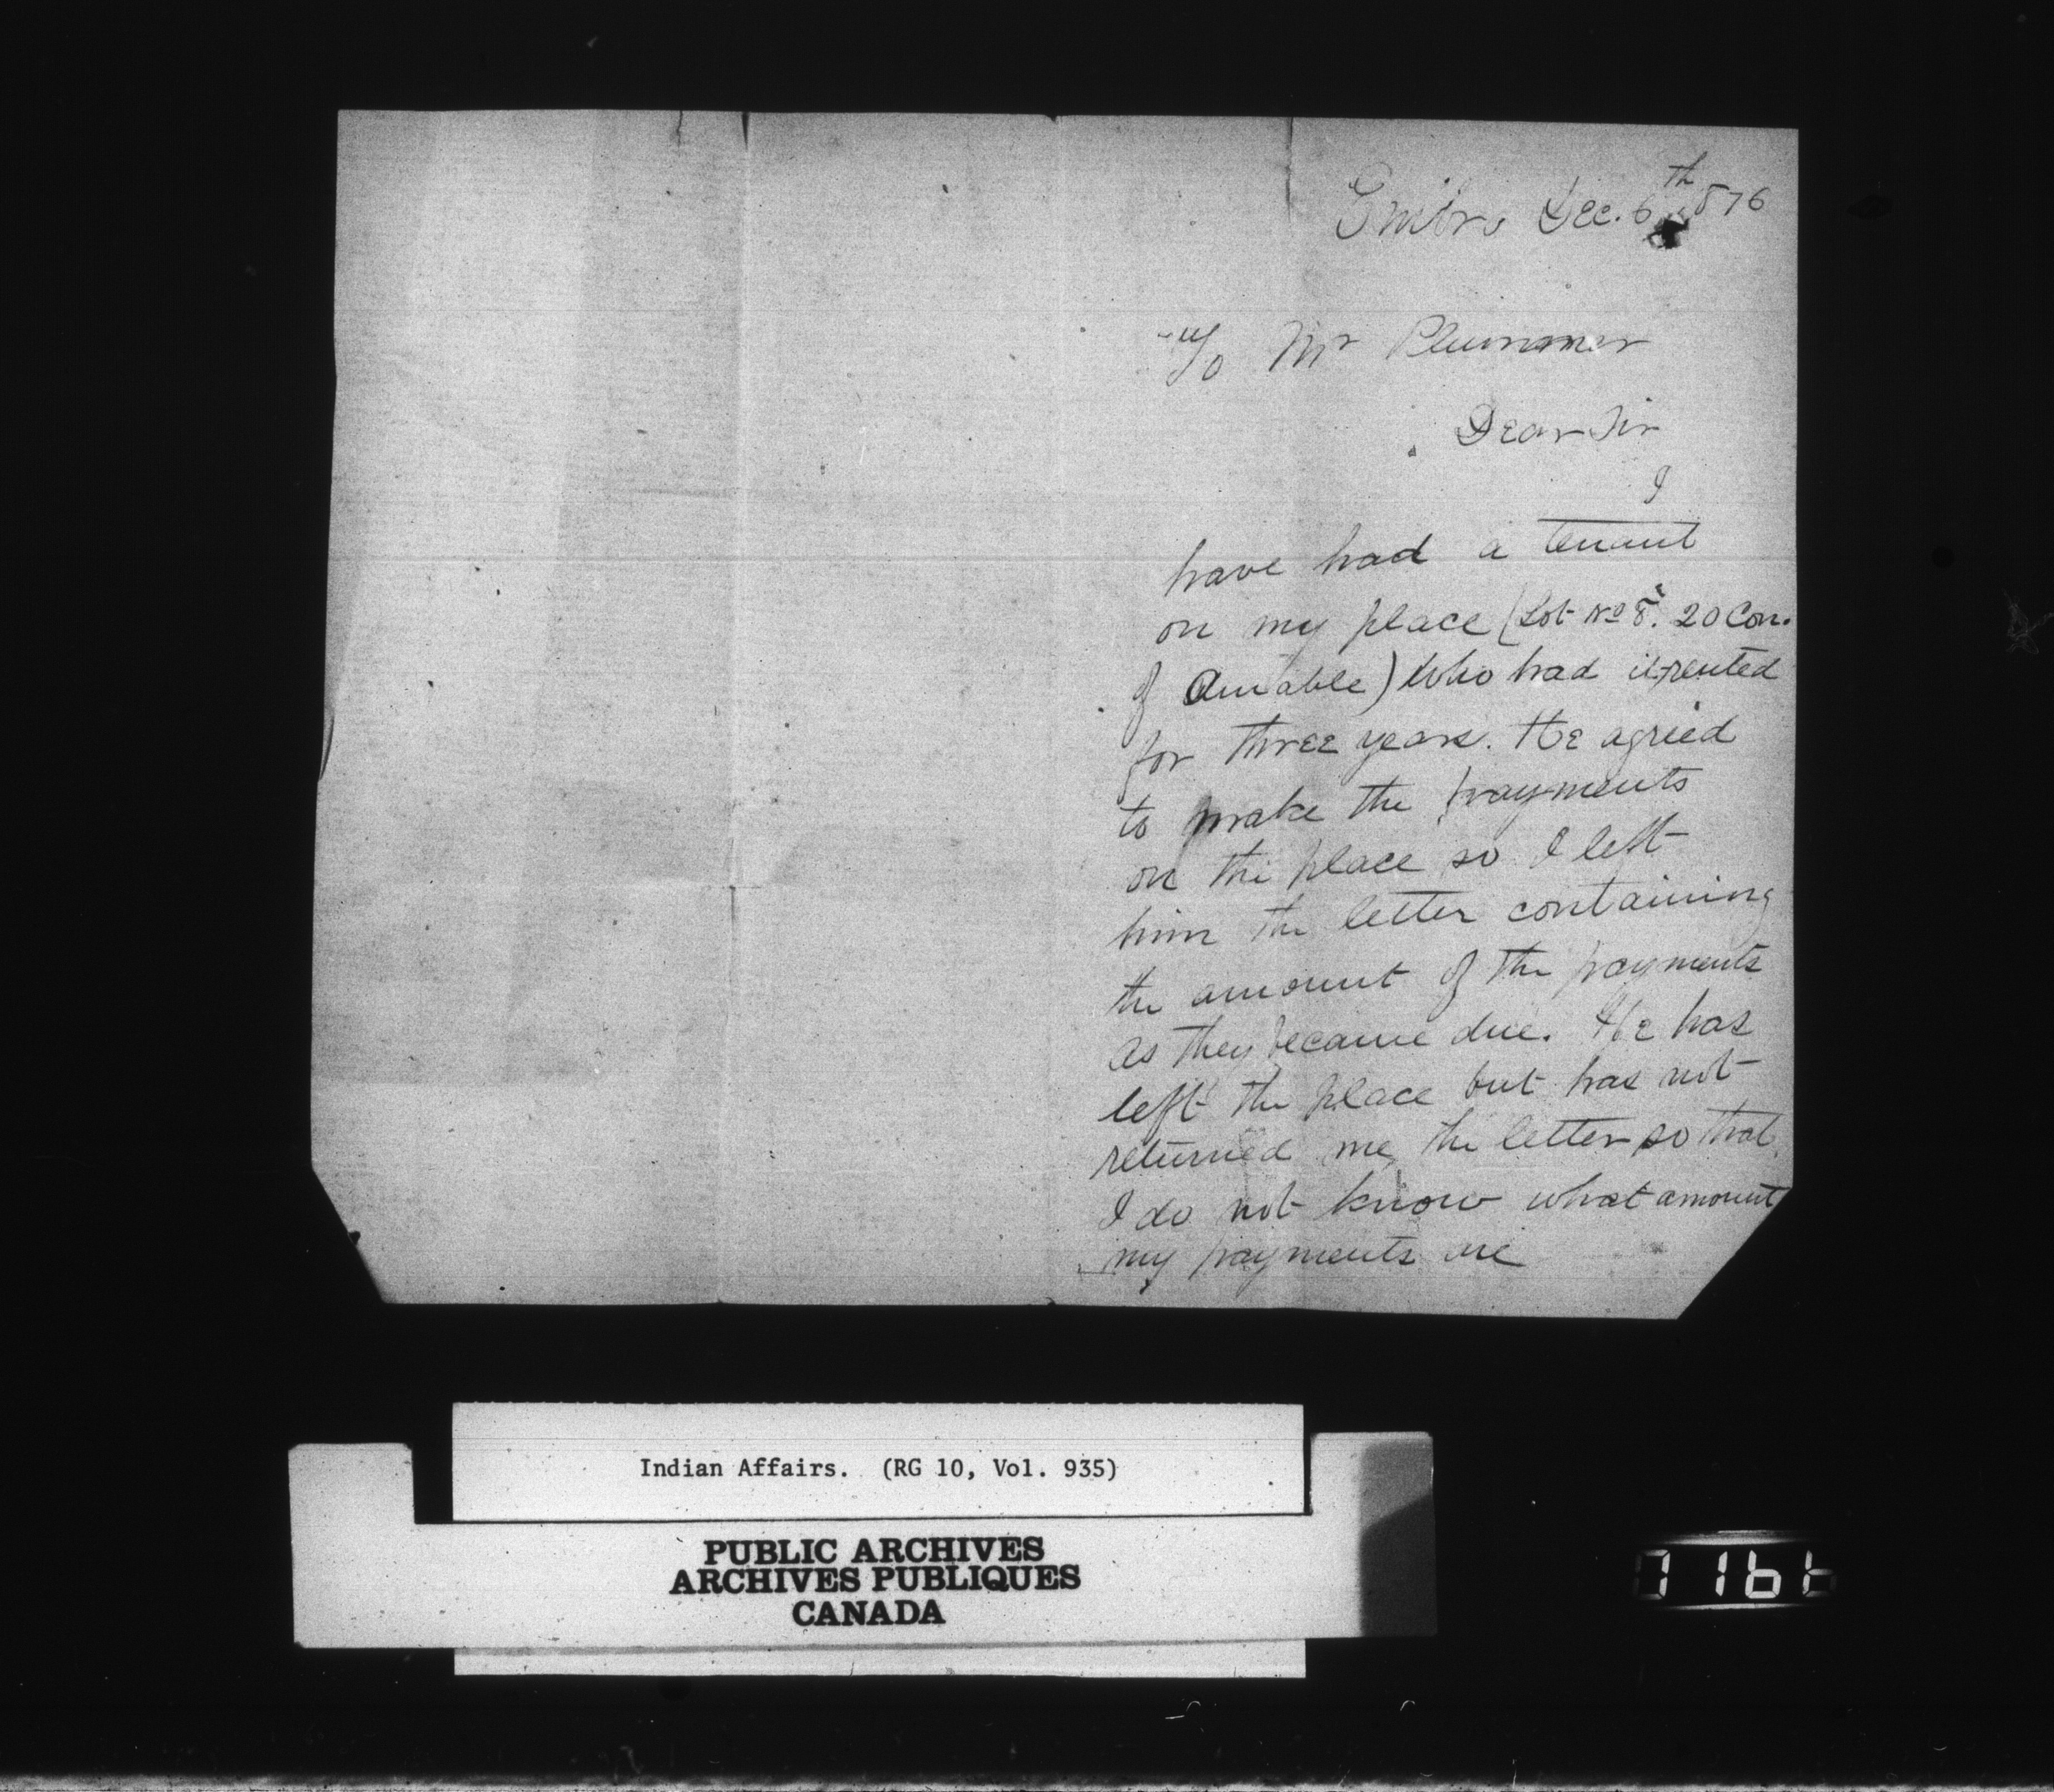 Embro Dec. 6th 1876
To Mr Plummer
Dear Sir
I
have had a tenant
on my place (Lot No 8. 20 Con.
of Amable) who had it rented
for three years. He agreed
to make the payments
on the place so I left
him the letter containing
the amount of the payments
as they became due. He has
left the place but has not
returned me the letter so that
I do not know what amount
my payments are
Indian Affairs. (RG 10, Vol. 935)
PUBLIC ARCHIVES
ARCHIVES PUBLIQUES
CANADA